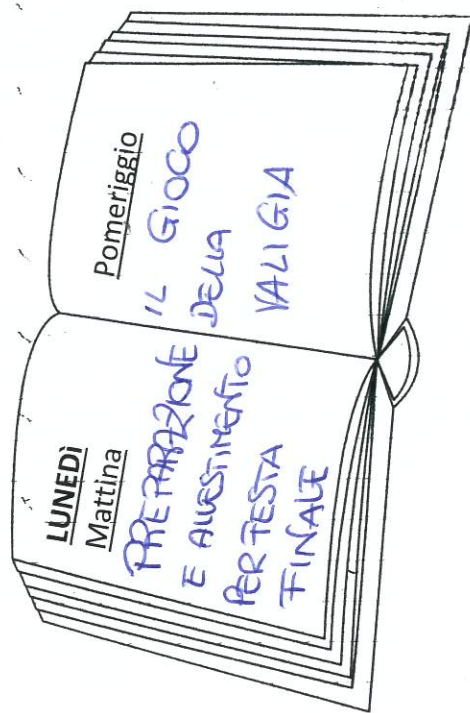 LUNEDÌ
Mattina
PREPARAZIONE
E ALLESTIMENTO
PER FESTA
FINALE
Pomeriggio
IL GIOCO
DELLA
VALIGIA